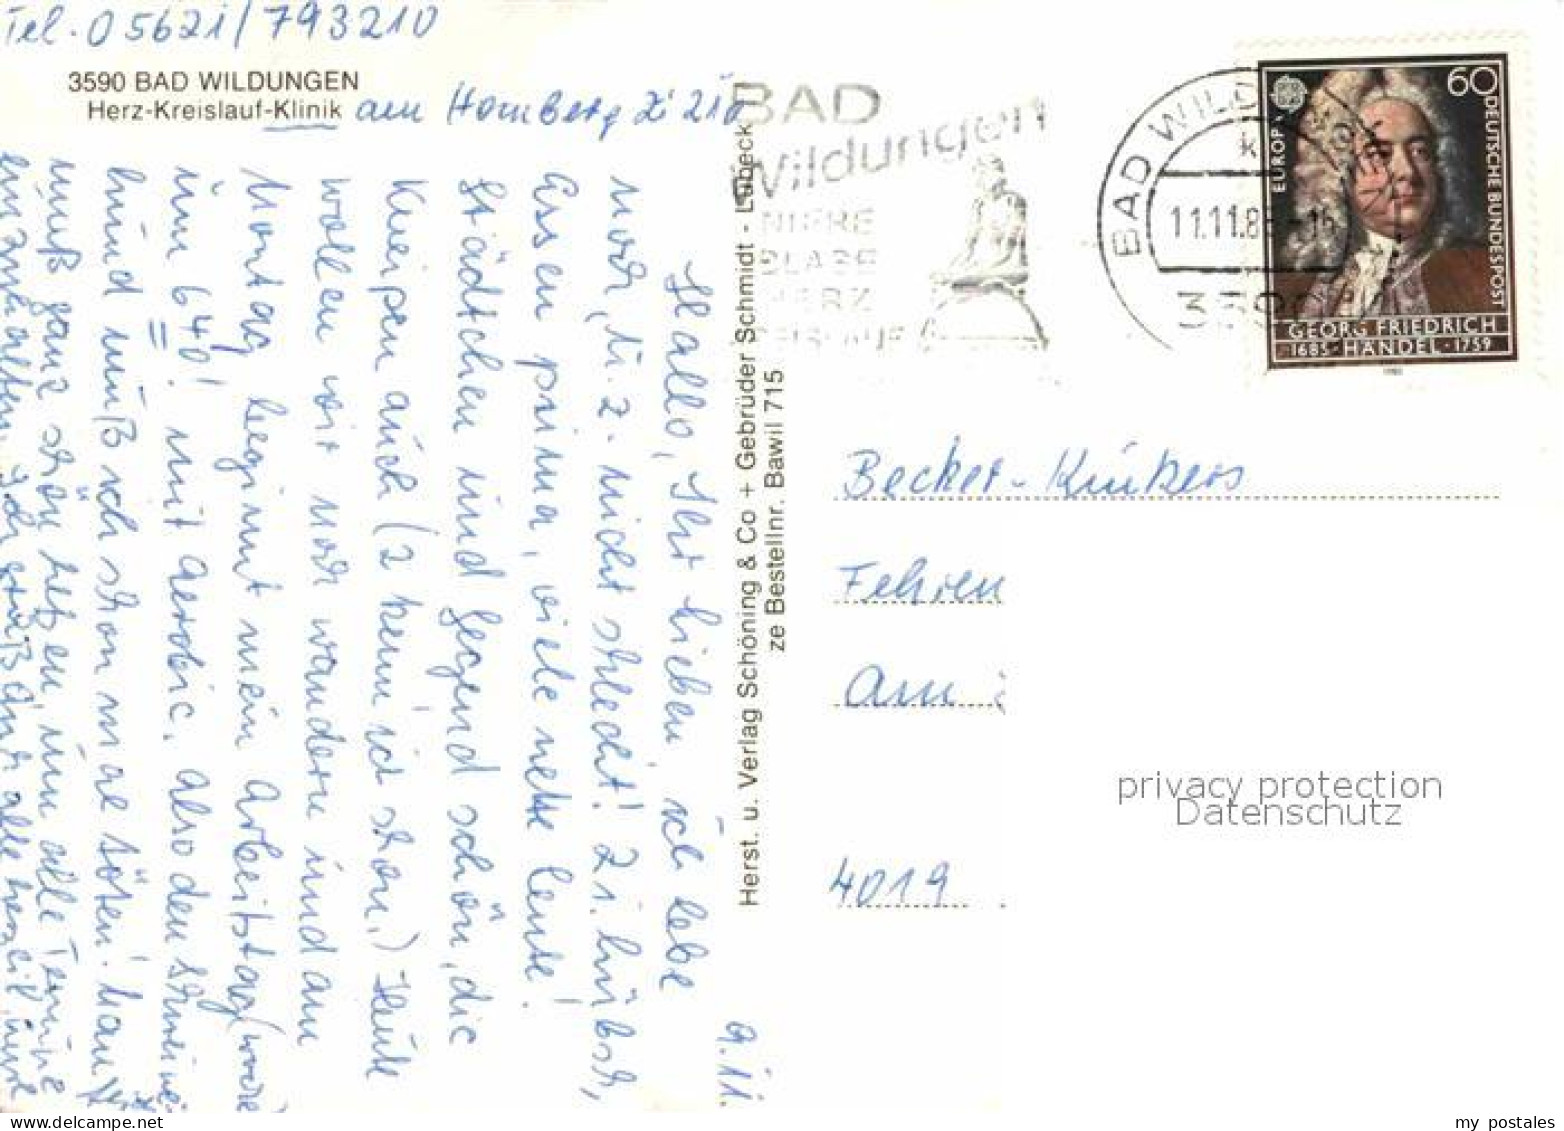 Tel. 05621/793210
3590 BAD WILDUNGEN
Herz-Kreislauf-Klinik am Homberg Zi 210
9.11.
Hallo, Ihr Lieben, ich lebe
noch, u. z. nicht schlecht! Zi. hübsch,
Essen prima, viele nette Leute!
Städtchen und Gegend schön, die
Kneipen auch (2 kenn ich schon.) Heute
wollen wir noch wandern und am
Montag beginnt mein Arbeitstag (
um 6⁴⁰! mit Aerobic. Also den
hund muß ich schon mal töten. Man
muß ganz schön hetzen, um alle Termine
einzuhalten. Ich grüß Euch alle herzlich
Herst. u. Verlag Schöning & Co + Gebrüder Schmidt - Lübeck
ze Bestellnr. Bawil 715
BAD
Wildungen
NIERE
BLASE
HERZ
KREISLAUF
BAD WILD
11.11.8
3590
EUROPA
60
DEUTSCHE BUNDESPOST
GEORG FRIEDRICH
1685 · HÄNDEL · 1759
Becker-Kückers
Fehren
Am
4019
privacy protection
Datenschutz
my postales